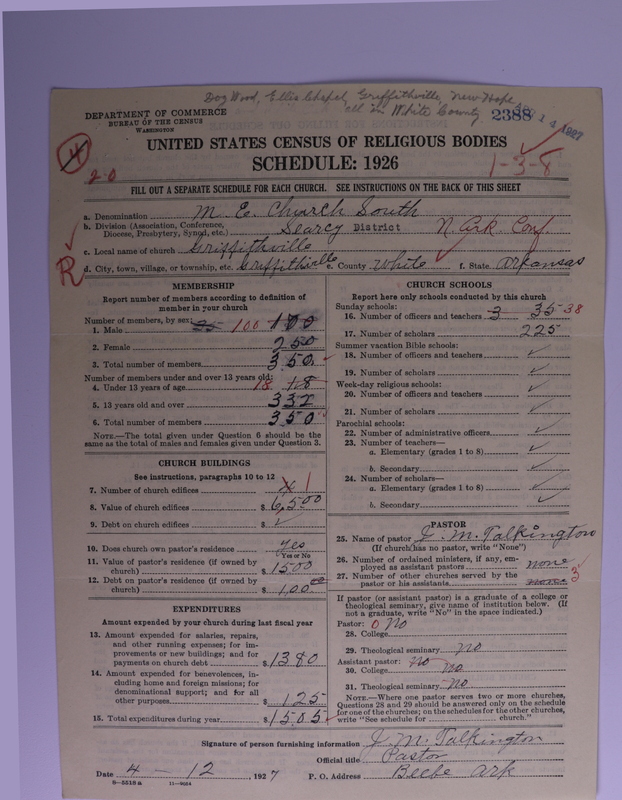 Dog Wood, Ellis Chapel, Griffithville, New Hope
all in White County
DEPARTMENT OF COMMERCE
BUREAU OF THE CENSUS
WASHINGTON
2388
14 1927
4
2-0
1-3-8
UNITED STATES CENSUS OF RELIGIOUS BODIES
SCHEDULE: 1926
FILL OUT A SEPARATE SCHEDULE FOR EACH CHURCH. SEE INSTRUCTIONS ON THE BACK OF THIS SHEET
a. Denomination M. E. Church South
b. Division (Association, Conference, Diocese, Presbytery, Synod, etc.) Searcy District N. Ark. Conf.
c. Local name of church Griffithville
R
d. City, town, village, or township, etc. Griffithville e. County White f. State Arkansas
MEMBERSHIP
Report number of members according to definition of
member in your church
Number of members, by sex:
1. Male 100 100
2. Female 250
3. Total number of members 350
Number of members under and over 13 years old:
4. Under 13 years of age 18 18
5. 13 years old and over 332
6. Total number of members 350
NOTE.—The total given under Question 6 should be
the same as the total of males and females given under Question 3.
CHURCH BUILDINGS
See instructions, paragraphs 10 to 12
7. Number of church edifices 4 1
8. Value of church edifices $ 6,500
9. Debt on church edifices $ ✓
10. Does church own pastor's residence Yes
Yes or No
11. Value of pastor's residence (if owned by
church) $ 1500
12. Debt on pastor's residence (if owned by
church) $ 100.00
EXPENDITURES
Amount expended by your church during last fiscal year
13. Amount expended for salaries, repairs,
and other running expenses; for im-
provements or new buildings; and for
payments on church debt $ 1380
14. Amount expended for benevolences, in-
cluding home and foreign missions; for
denominational support; and for all
other purposes $ 125
15. Total expenditures during year $ 1505
CHURCH SCHOOLS
Report here only schools conducted by this church
Sunday schools:
16. Number of officers and teachers 3 35 38
17. Number of scholars 225
Summer vacation Bible schools:
18. Number of officers and teachers ✓
19. Number of scholars ✓
Week-day religious schools:
20. Number of officers and teachers ✓
21. Number of scholars ✓
Parochial schools:
22. Number of administrative officers ✓
23. Number of teachers—
a. Elementary (grades 1 to 8) ✓
b. Secondary ✓
24. Number of scholars—
a. Elementary (grades 1 to 8) ✓
b. Secondary ✓
PASTOR
25. Name of pastor J. M. Talkington
(If church has no pastor, write "None")
26. Number of ordained ministers, if any, em-
ployed as assistant pastors none
27. Number of other churches served by the
pastor or his assistants none 3
If pastor (or assistant pastor) is a graduate of a college or
theological seminary, give name of institution below. (If
not a graduate, write "No" in the space indicated.)
Pastor: 0 No
28. College
29. Theological seminary no
Assistant pastor: no
30. College no
31. Theological seminary no
NOTE.—Where one pastor serves two or more churches,
Questions 28 and 29 should be answered only on the schedule
for one of the churches; on the schedules for the other churches,
write "See schedule for church."
Signature of person furnishing information J. M. Talkington
Official title Pastor
Date 4 - 12, 1927 P. O. Address Beebe Ark
8-5518a 11-9024